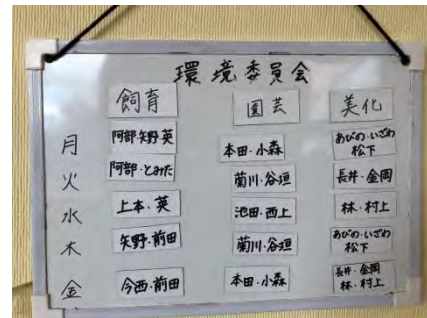 環境委員会
飼育 園芸 美化
月 阿部・矢野 英 本田・小森 あびの・いざわ
松下
火 阿部・とみた 菊川・谷垣 長井・金岡
水 上本・英 池田・西上 林・村上
木 矢野・前田 菊川・谷垣 あびの・いざわ
松下
金 今西・前田 本田・小森 長井・金岡
林・村上